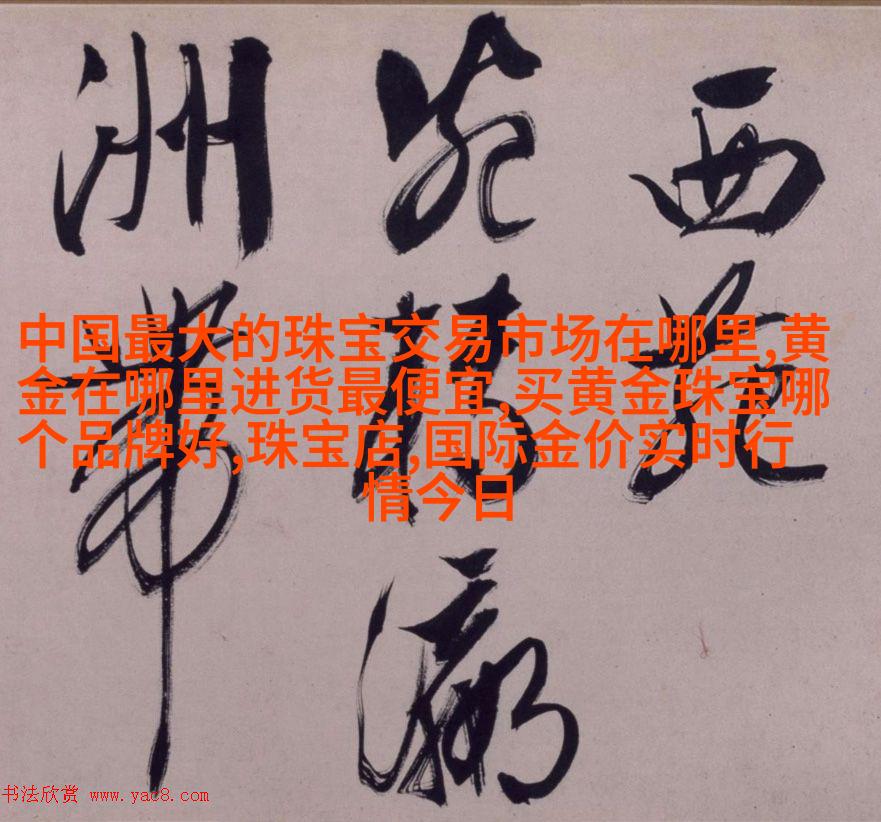 西苑
瀛
洲帶
中国最大的珠宝交易市场在哪里,黄
金在哪里进货最便宜,买黄金珠宝哪
个品牌好,珠宝店,国际金价实时行
情今日
书法欣赏 www.yac8.com